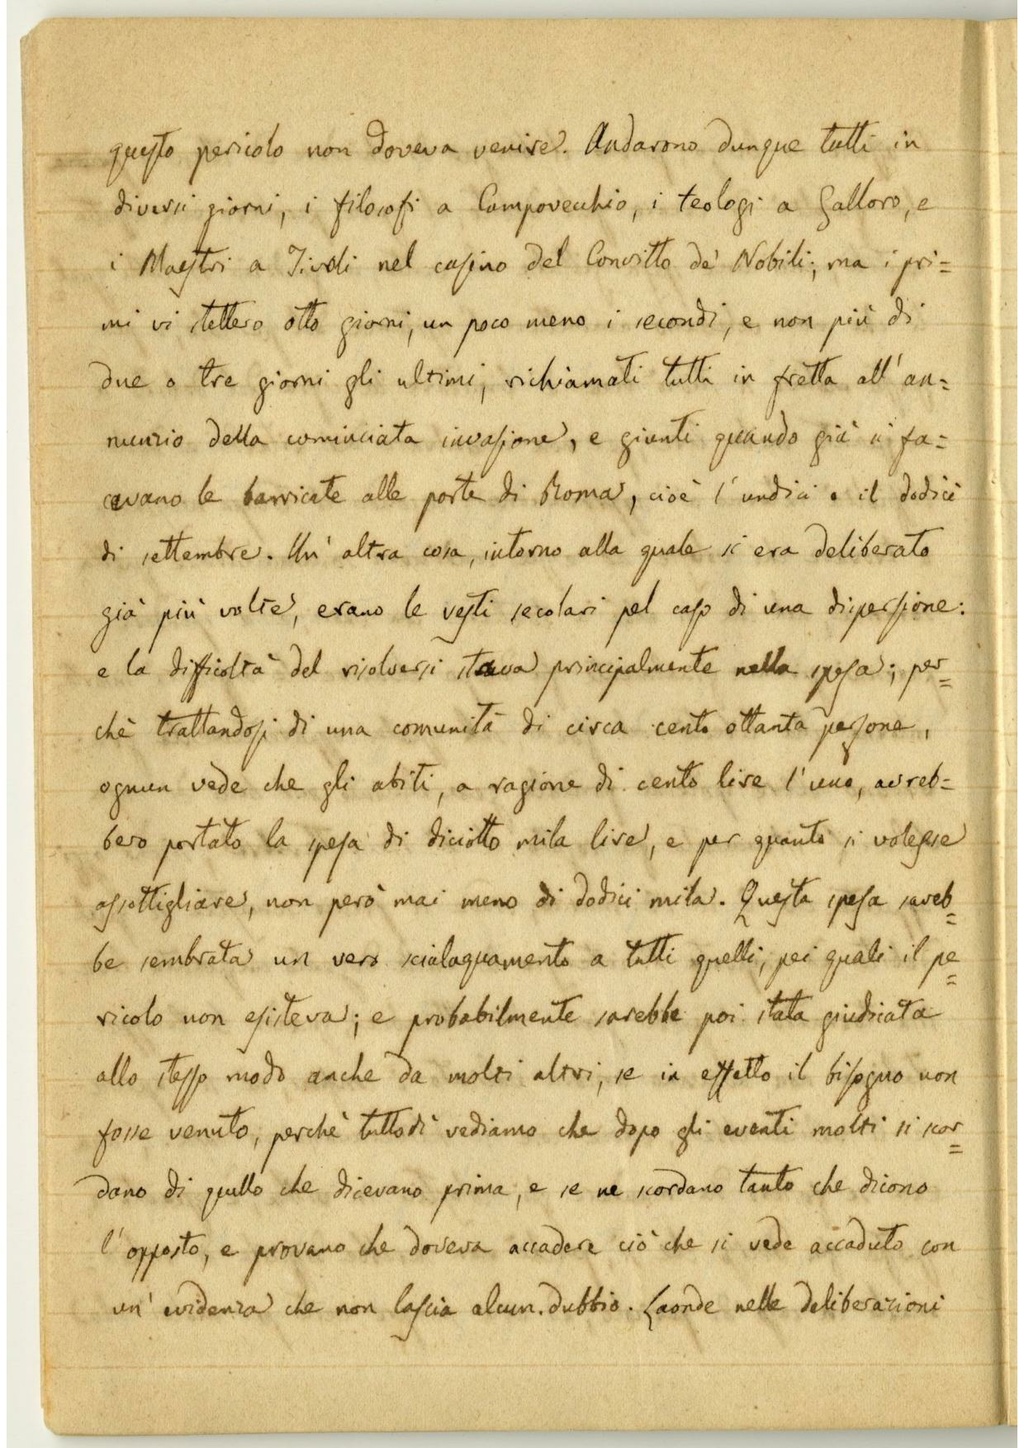 questo pericolo non doveva venire. Andarono dunque tutti in
diversi giorni, i filosofi a Campovecchio, i teologi a Galloro, e
i Maestri a Tivoli nel casino del Convitto de' Nobili; ma i pri=
mi vi stettero otto giorni, un poco meno i secondi, e non più di
due o tre giorni gli ultimi, richiamati tutti in fretta all'an=
nunzio della cominciata invasione, e giunti quando già si fa=
cevano le barricate alle porte di Roma, cioè l'undici o il dodici
di settembre. Un'altra cosa, intorno alla quale si era deliberato
già più volte, erano le vesti secolari pel caso di una dispersione:
e la difficoltà del risolversi stava principalmente nella spesa; per=
chè trattandosi di una comunità di circa cento ottanta persone,
ognun vede che gli abiti, a ragione di cento lire l'uno, avreb=
bero portato la spesa di diciotto mila lire, e per quanto si volesse
assottigliare, non però mai meno di dodici mila. Questa spesa sareb=
be sembrata un vero scialaquamento a tutti quelli, pei quali il pe=
ricolo non esisteva; e probabilmente sarebbe poi stata giudicata
allo stesso modo anche da molti altri, se in effetto il bisogno non
fosse venuto, perchè tuttodì vediamo che dopo gli eventi molti si scor=
dano di quello che dicevano prima, e se ne scordano tanto che dicono
l'opposto, e provano che doveva accadere ciò che si vede accaduto con
un'evidenza che non lascia alcun dubbio. Laonde nelle deliberazioni